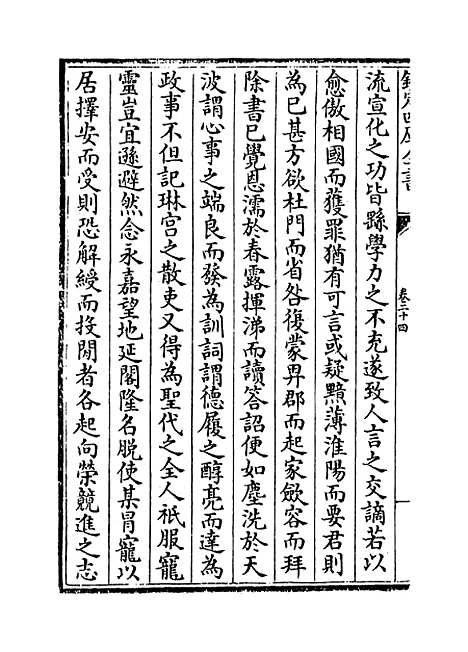 欽定四庫全書
卷二十四
流宣化之功皆繇學力之不充遂致人言之交謫若以
愈傲相國而獲罪猶有可言或疑黯薄淮陽而要君則
為已甚方欲杜門而省咎復蒙畀郡而起家斂容而拜
除書已覺恩濡於春露揮涕而讀答詔便如塵洗於天
波謂心事之端良而發為訓詞謂德履之醇亮而達為
政事不但記琳宫之散吏又得為聖代之全人祇服寵
靈豈宜遜避然念永嘉望地延閣隆名脫使某冒寵以
居擇安而受則恐解綬而投閒者各起向榮競進之志